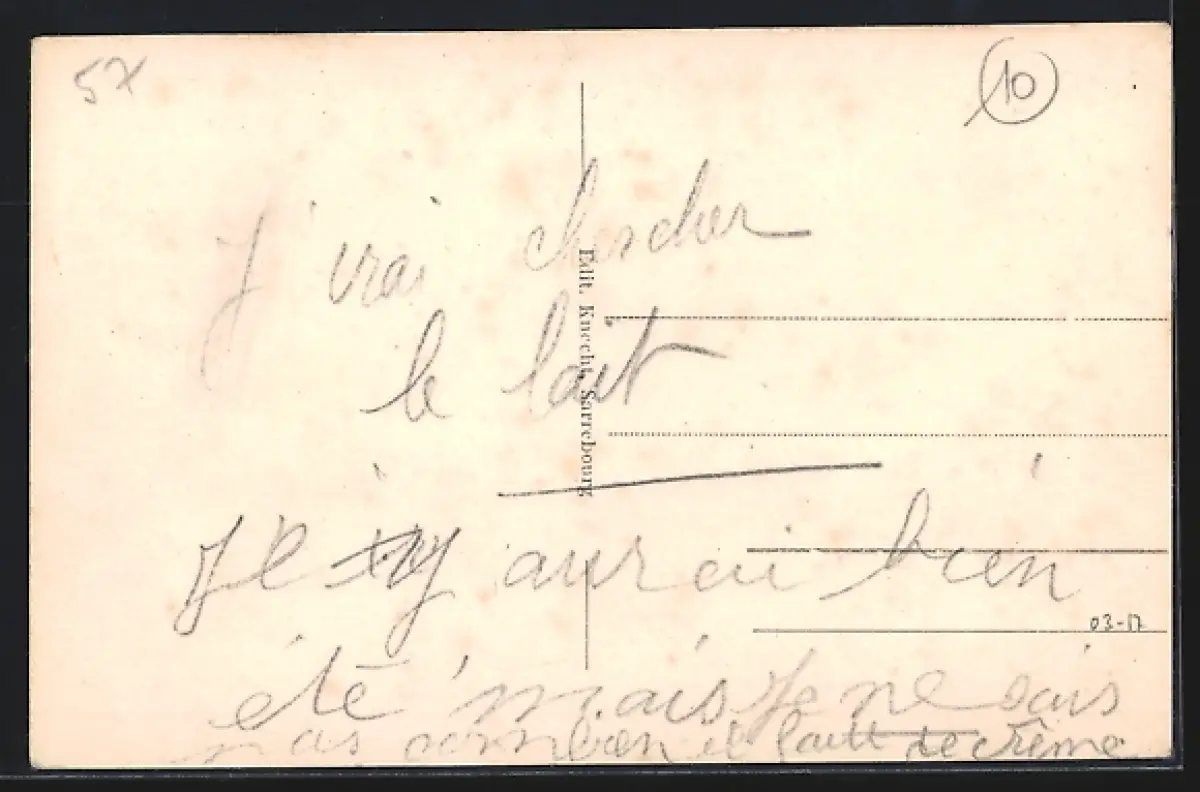 57
10
J'irai chercher
le lait
Edit. Knecht, Sarrebourg
Je y aurai bien
03-17
été mais je ne sais
pas combien il faut de crème